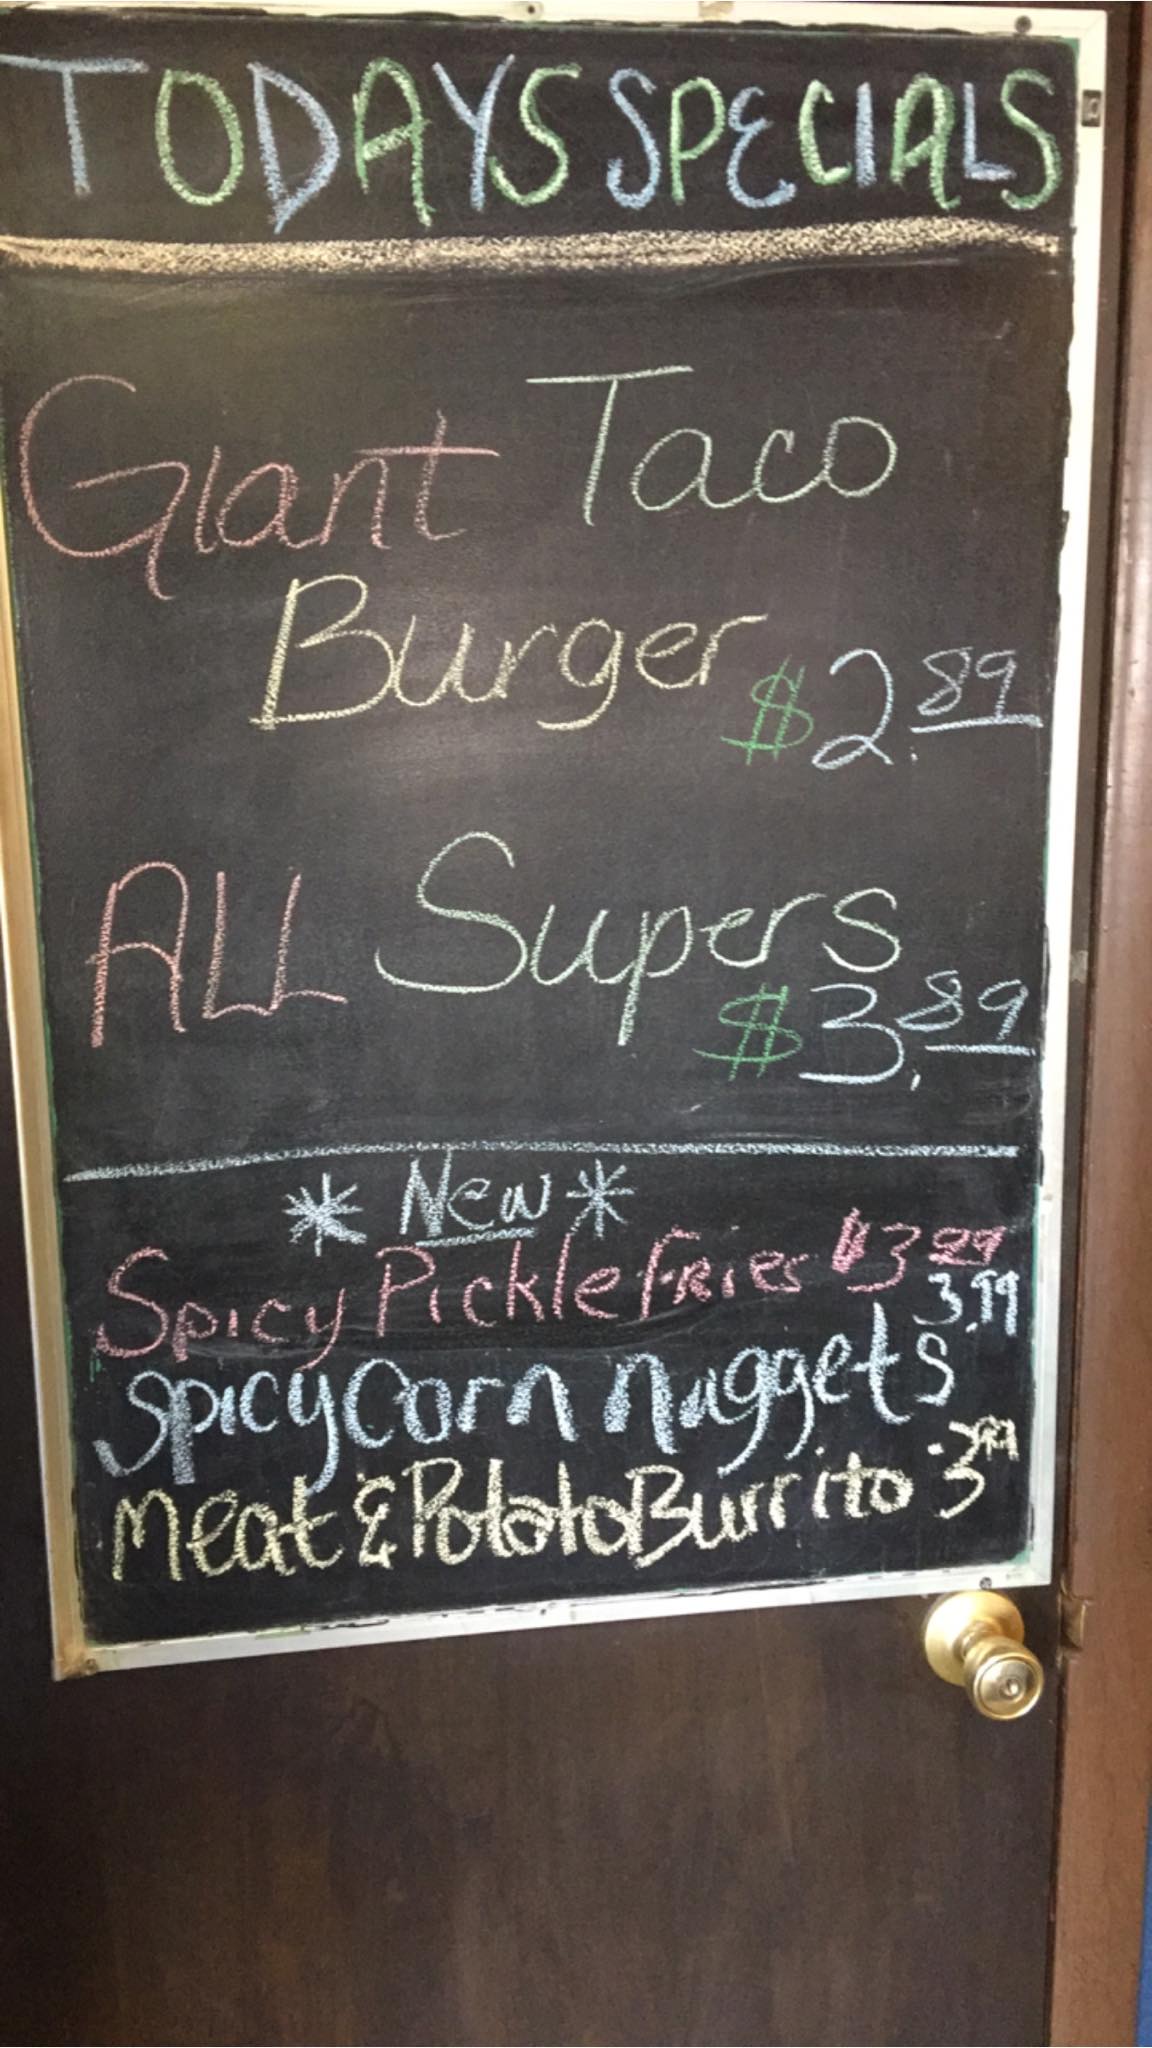 TODAYS SPECIALS
Giant Taco
Burger $2.89
ALL Supers
$3.89
* New *
Spicy Pickle Fries $3.99
3.99
Spicy Corn Nuggets
Meat & Potato Burrito 3.99